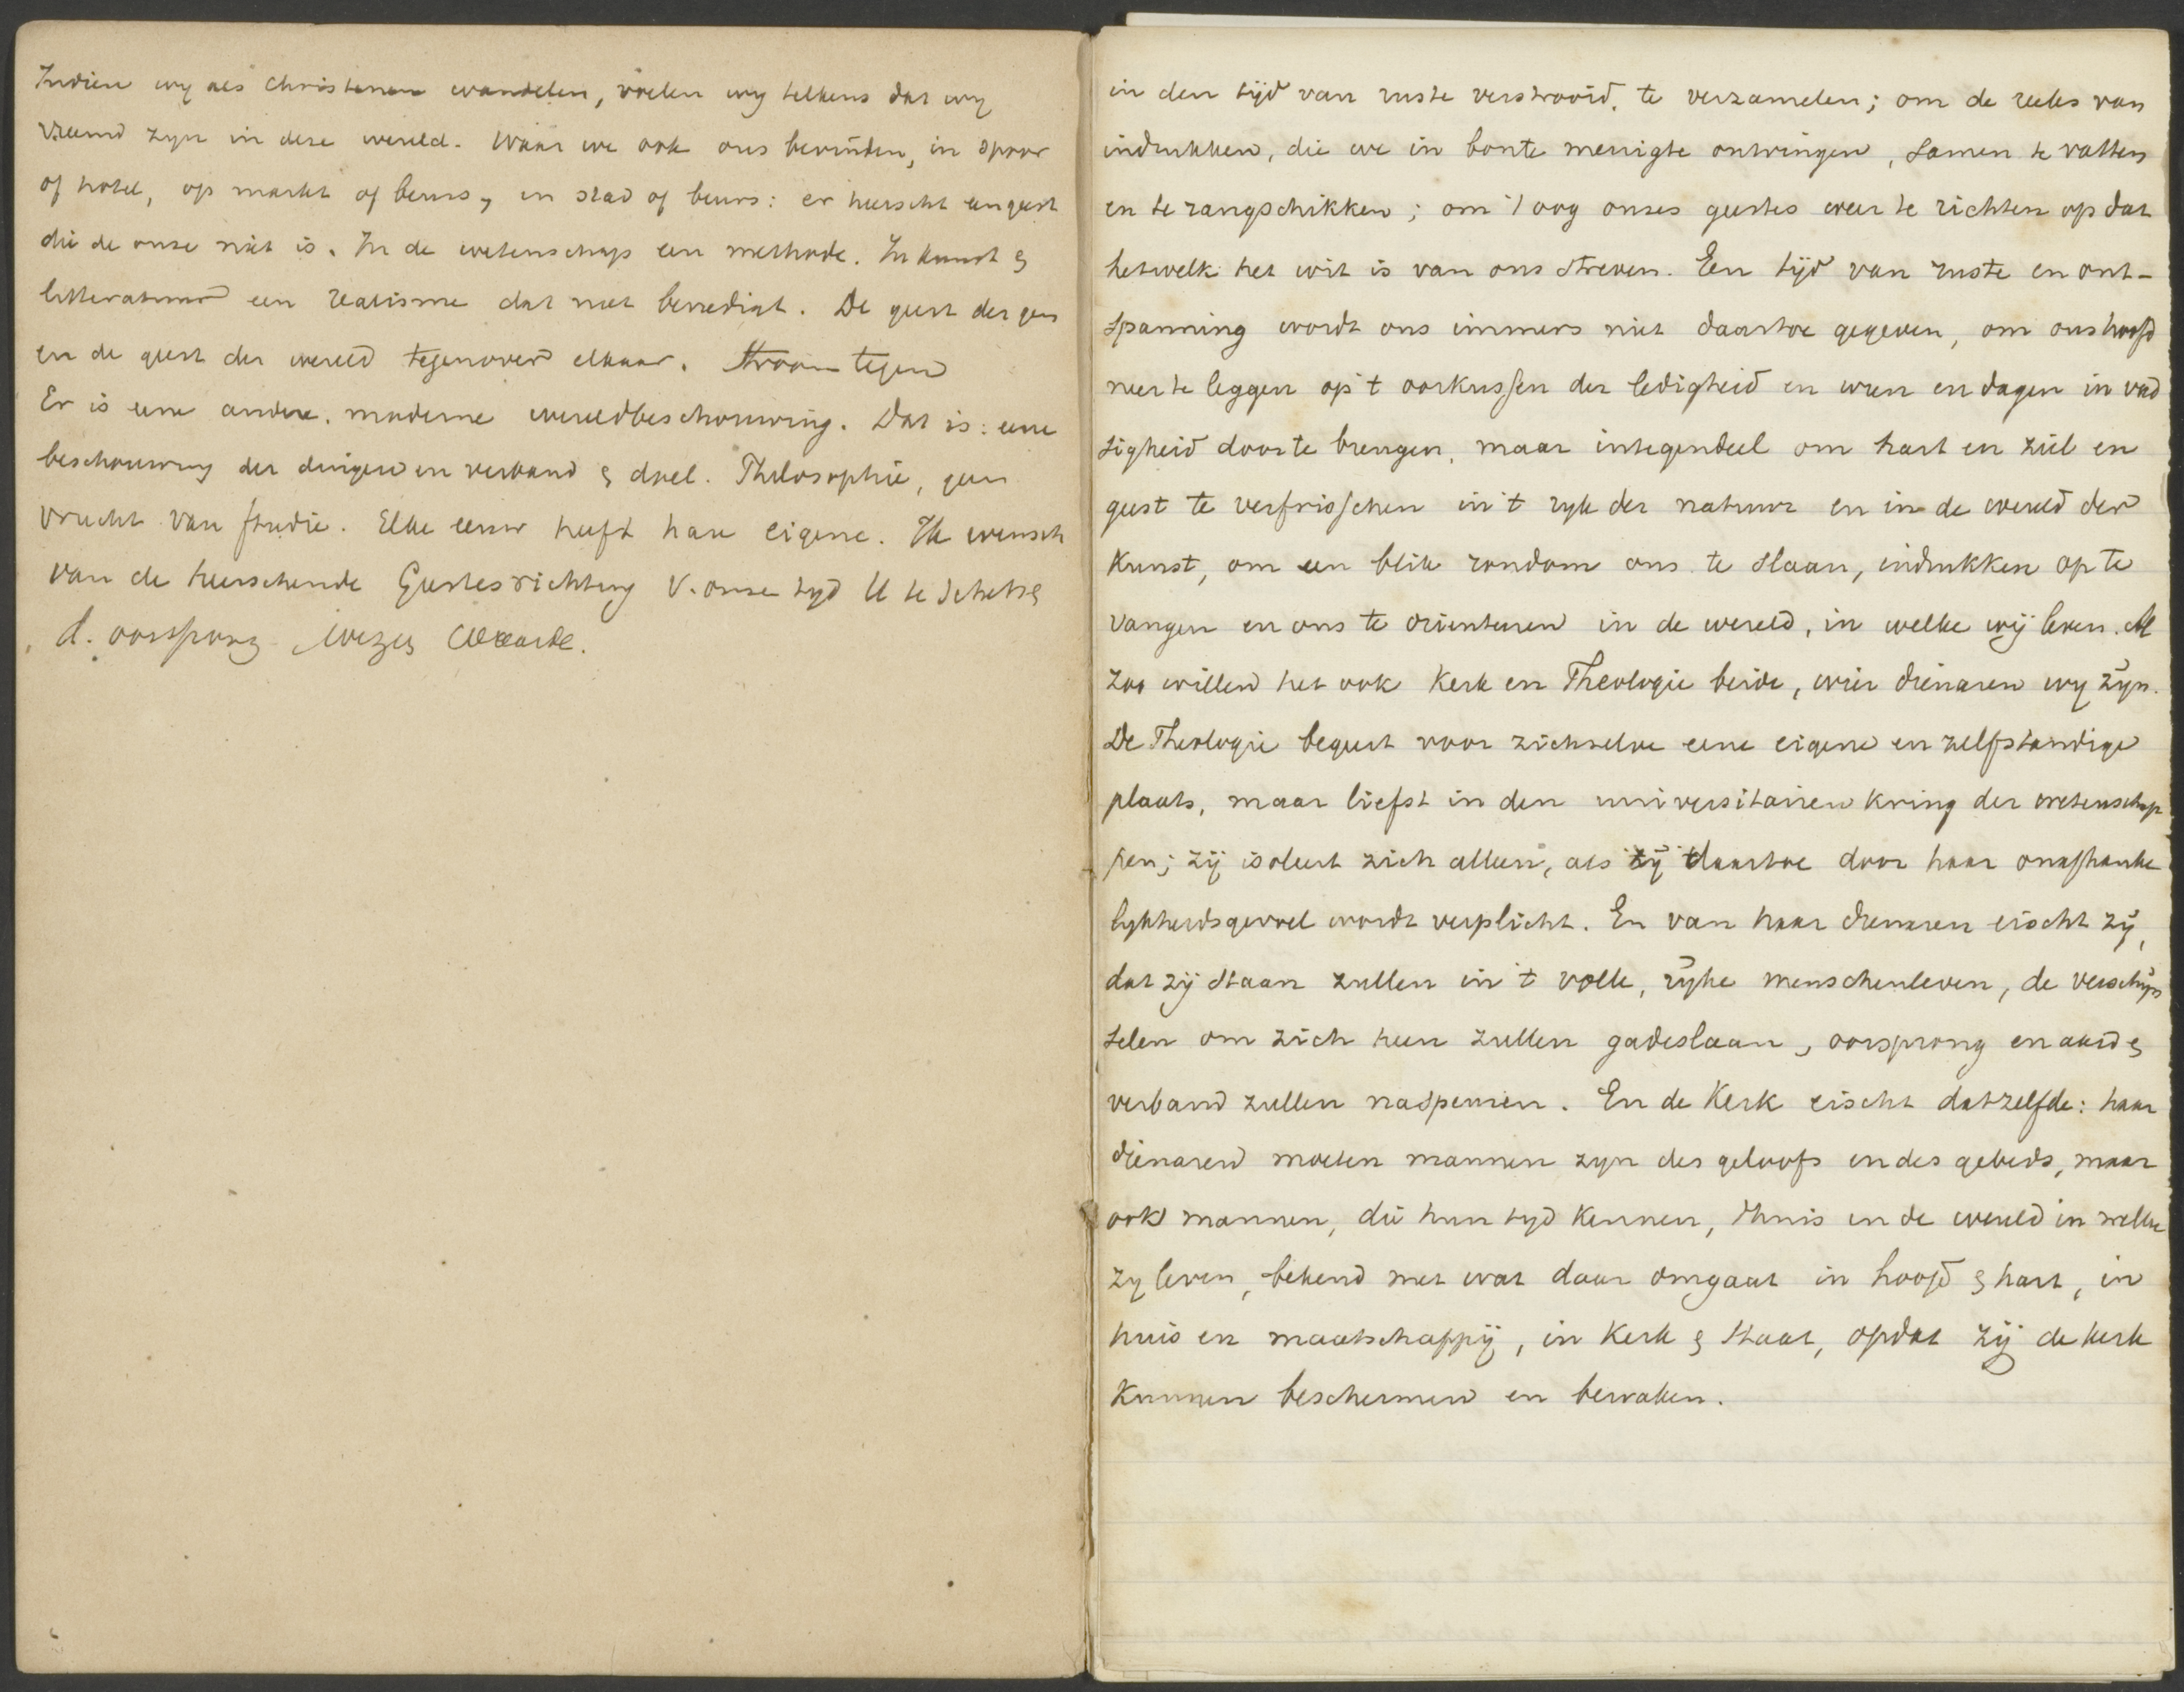 Indien wy als Christenen wandelen, voelen wy telkens dat wy
vreemd zyn in deze wereld. Waar we ook ons bevinden, in spoor
of hotel, op markt of beurs, in stad of beurs: er heerscht een geest
die de onze niet is. In de wetenschap een methode. In kunst &
litteratuur een realisme dat niet bevredigt. De geest der
en de geest der wereld tegenover elkaar. Stroom tegen
Er is eene andere, moderne wereldbeschouwing. Dat is: eene
beschouwing der dingen in verband & doel. Philosophie, geen
vrucht van studie. Elke eeuw heeft hare eigene. Ik wensch
van de heerschende Geestesrichting v. onze tyd U te schetsen
d. oorsprong wezen waarde.
in den tijd van ruste verstrooid, te verzamelen; om de reeks van
indrukken, die we in bonte menigte ontvingen, samen te vatten
en te rangschikken; om 't oog onzes geestes weer te richten op dat
hetwelk het wit is van ons streven. Een tijd van ruste en ont-
spanning wordt ons immers niet daartoe gegeven, om ons hoofd
neer te leggen op 't oorkussen der ledigheid en uren en dagen in vad
sigheid door te brengen, maar integendeel om hart en ziel en
geest te verfrisschen in 't ryk der natuur en in de wereld der
Kunst, om een blik rondom ons te slaan, indrukken op te
vangen en ons te orienteeren in de wereld, in welke wij leven. Al
zoo willen het ook Kerk en Theologie beide, wier dienaren wy zyn.
De Theologie begeert voor zichzelve eene eigene en zelfstandige
plaats, maar liefst in den universitairen kring der wetenschap
pen; zij isoleert zich alleen, als zij daartoe door haar onafhanke
lykheidsgevoel wordt verplicht. En van haar dienaren eischt zij,
dat zij staan zullen in 't volle, ryke menschenleven, de verschijn
selen om zich heen zullen gadeslaan, oorsprong en aard &
verband zullen naspeuren. En de Kerk eischt datzelfde: haar
dienaren moeten mannen zyn des geloofs en des gebeds, maar
ook mannen, die hun tyd kennen, thuis in de wereld in welke
zy leven, bekend met wat daar omgaat in hoofd & hart, in
huis en maatschappij, in Kerk & Staat, opdat zij de kerk
kunnen beschermen en bewaken.